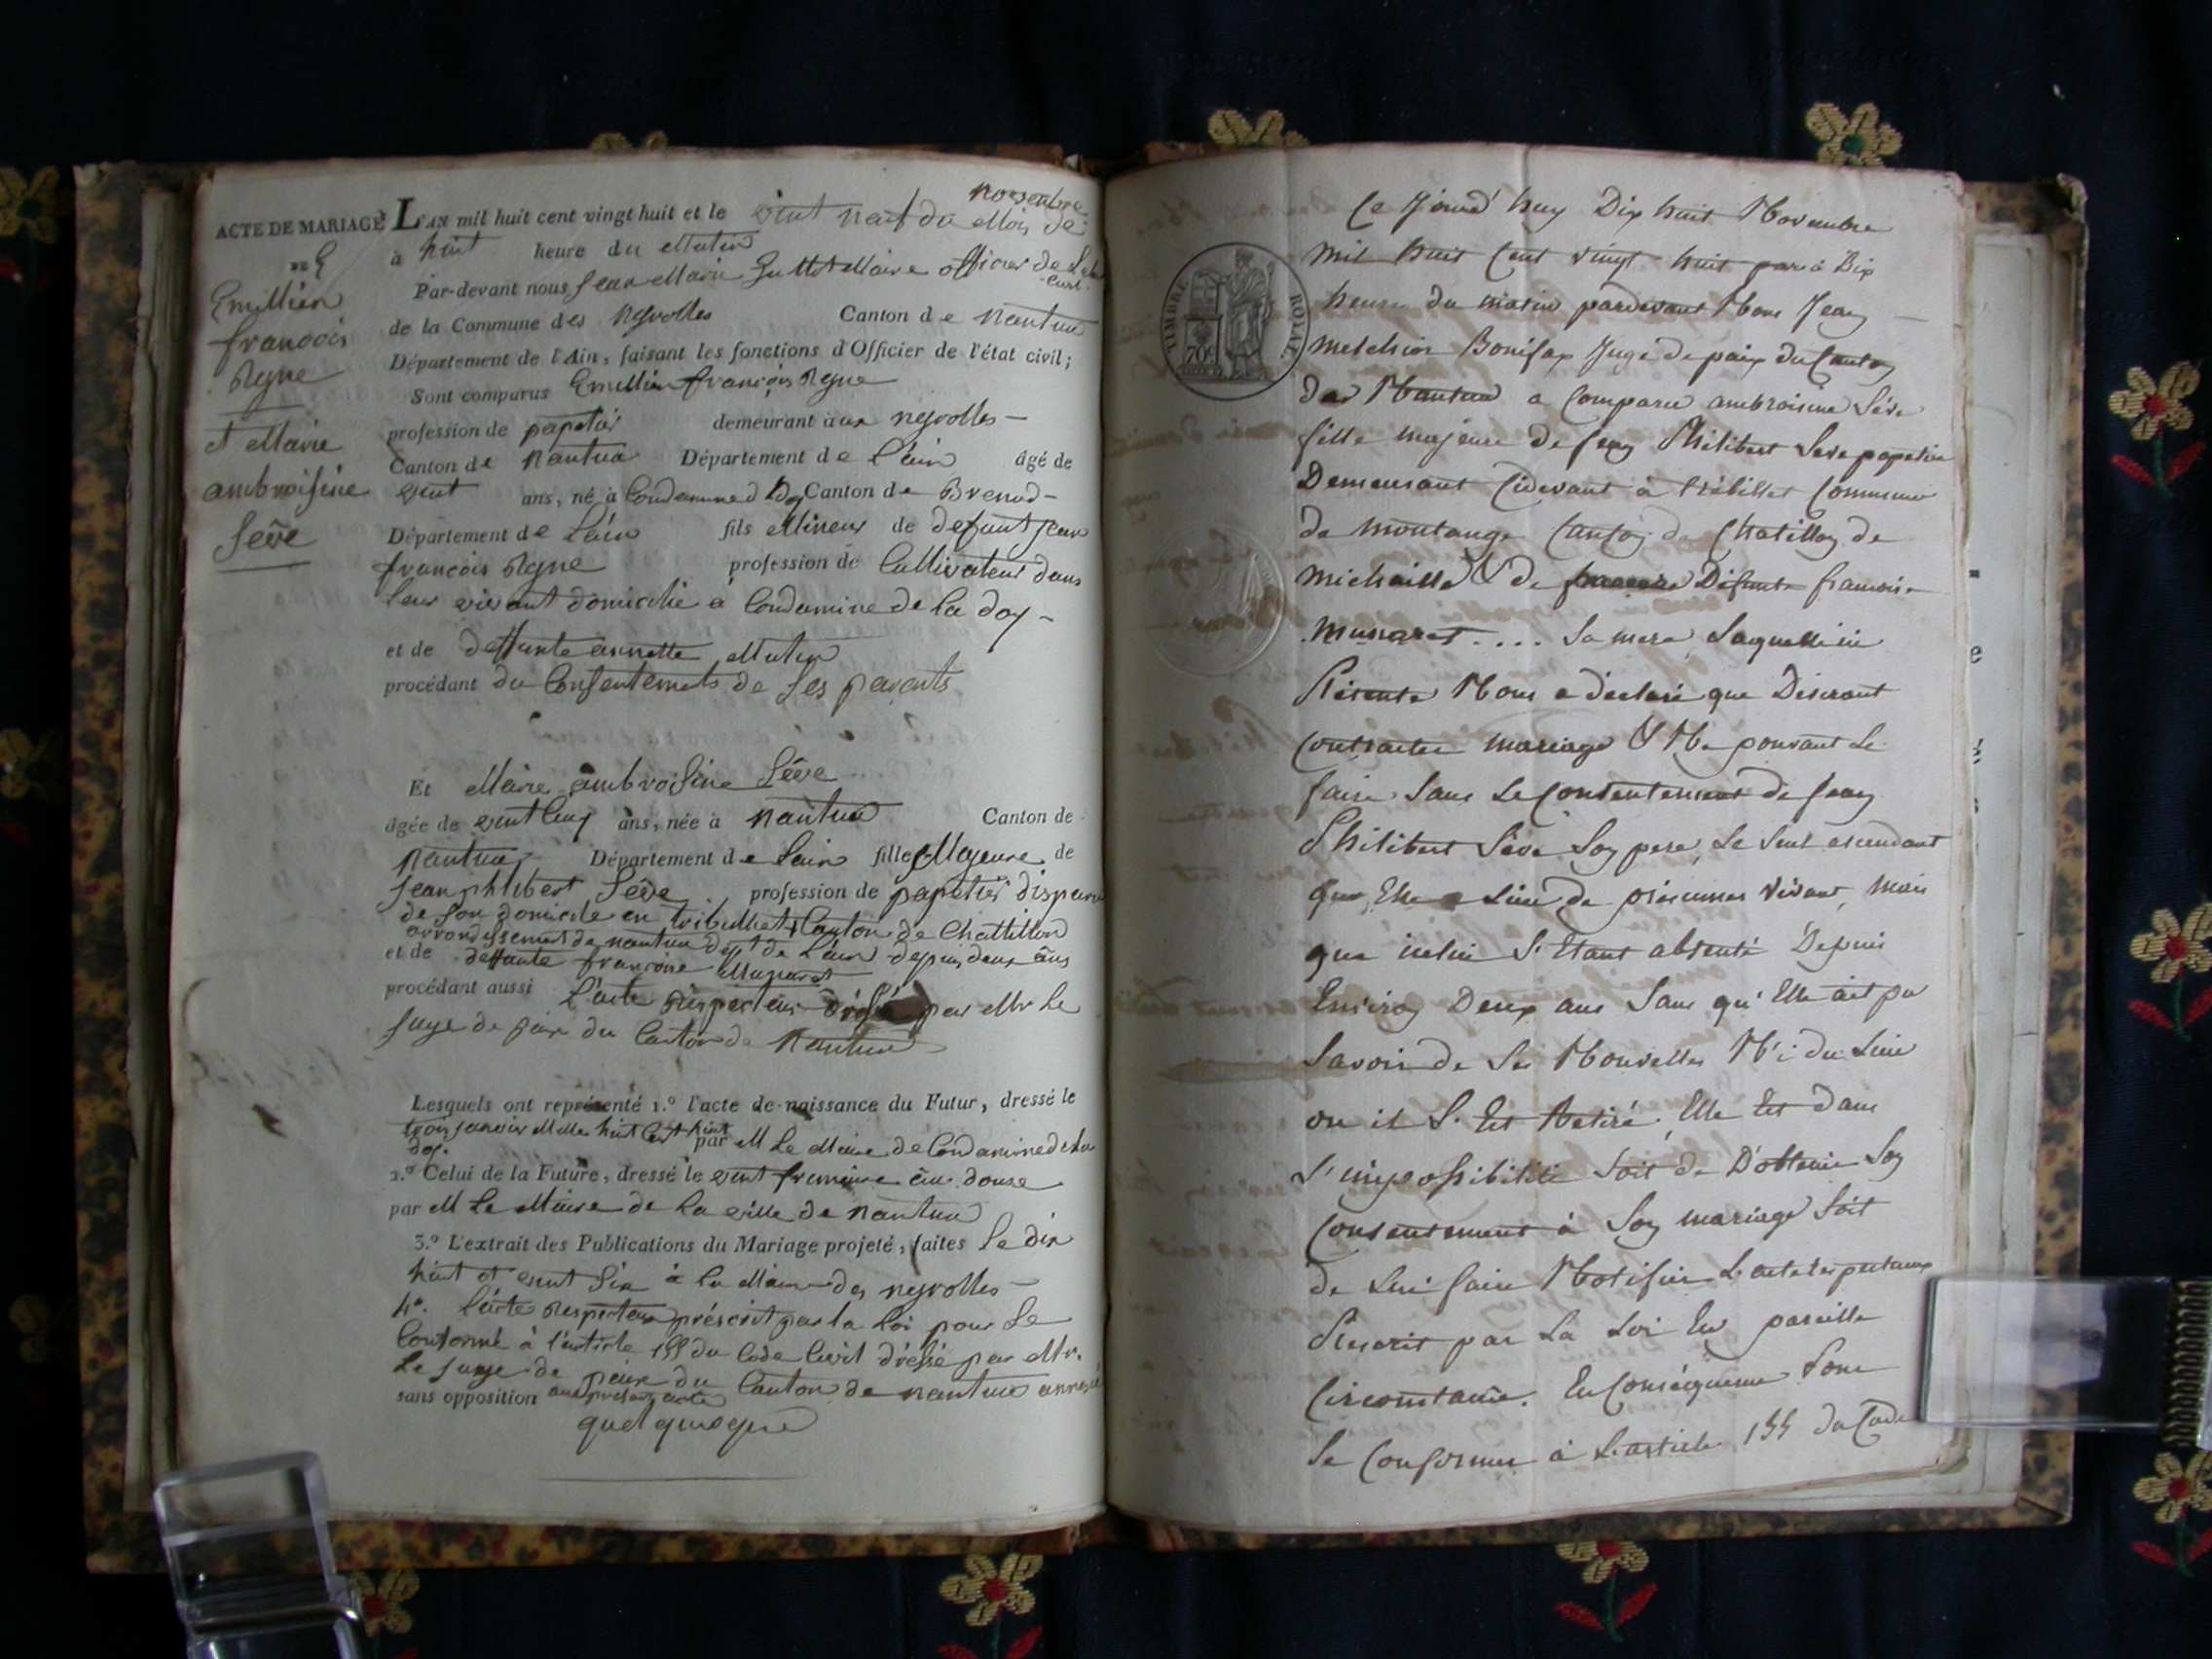 novembre
ACTE DE MARIAGE L'AN mil huit cent vingt huit et le vint neuf du Mois de
DE à huit heure du Matin
Emillien
françois
Regne
et Marie
ambroisine
Sève
Par-devant nous Jean Marie Maire officier de
civil
de la Commune des neyrolles Canton de nantua
Département de l'Ain, faisant les fonctions d'Officier de l'état civil;
Sont comparus Emillien françois Regne
profession de papetier demeurant aux neyrolles
Canton de nantua Département de l'ain âgé de
vint ans, né à Condamine d Doy Canton de Brenod
Département de l'ain fils Mineur de defunt jean
françois Regne profession de Cultivateur dans
leur vivant domicilié à Condamine de la doy
et de deffunte annette Mutin
procédant du Consentements de ses parents
Et Marie ambroisine Sève
âgée de vint cinq ans, née à nantua Canton de
nantua Département de Lain fille Majeure de
jean philibert Sève profession de papetier disparu
de son domicile en tribulliet Canton de Chattillon
arrondissement de nantua dept de L'ain depuis deux ans
et de deffunte françoise Munaret
procédant aussi L'acte respecteux par Mr le
juge de paix du Canton de nantua
Lesquels ont représenté 1.º l'acte de naissance du Futur, dressé le
trois janvier Mille huit Cent huit par M Le Maire de Condamine de la
doy.
2.º Celui de la Future, dressé le vint frimaire an douze
par M Le Maire de la ville de nantua
3.º L'extrait des Publications du Mariage projeté, faites le dix
huit et vint six à la Mairie des neyrolles
4º. L'acte Respecteux préscrit par la Loi pour se
Conformé à l'article 155 du Code Civil dréssé par Mr.
Le juge de paix du Canton de nantua annexé
sans opposition aux présent acte
quelquoque
Ce Jourd'huy Dix huit Novembre
TIMBRE ROYAL
70c
mil huit Cent vingt huit par à Dix
heures du matin pardevant Nous Jean
melchior Bonifax Juge de paix du Canton
de Nantua a Comparu ambroisine Sève
fille majeure de Jean Philibert Sève papetier
Demeurant Cidevant à trébillet Commune
de montange Canton de Chatillon de
michaille & de Défunte francoise
Munaret.... Sa mere, Laquelle ici
Présente Nous a déclaré que Désirant
Contracter mariage & Ne pouvant Le
faire Sans Le Consentement de Jean
Philibert Sève Son pere, Le Seul ascendant
que Elle a Lieu de présumer Vivant, mais
que icelui S'Etant absenté Depuis
Environ Deux ans Sans qu'Elle ait pu
Savoir de Ses Nouvelles Ni du Lieu
ou il S'Est Retiré, Elle Est dans
L'impossibilité Soit de D'obtenir Son
Consentement à Son mariage Soit
de Lui faire Notifier L'acte respectueux
Prescrit par La Loi En pareille
Circonstance. En Conséquence Pour
Se Conformer à L'article 155 du Code